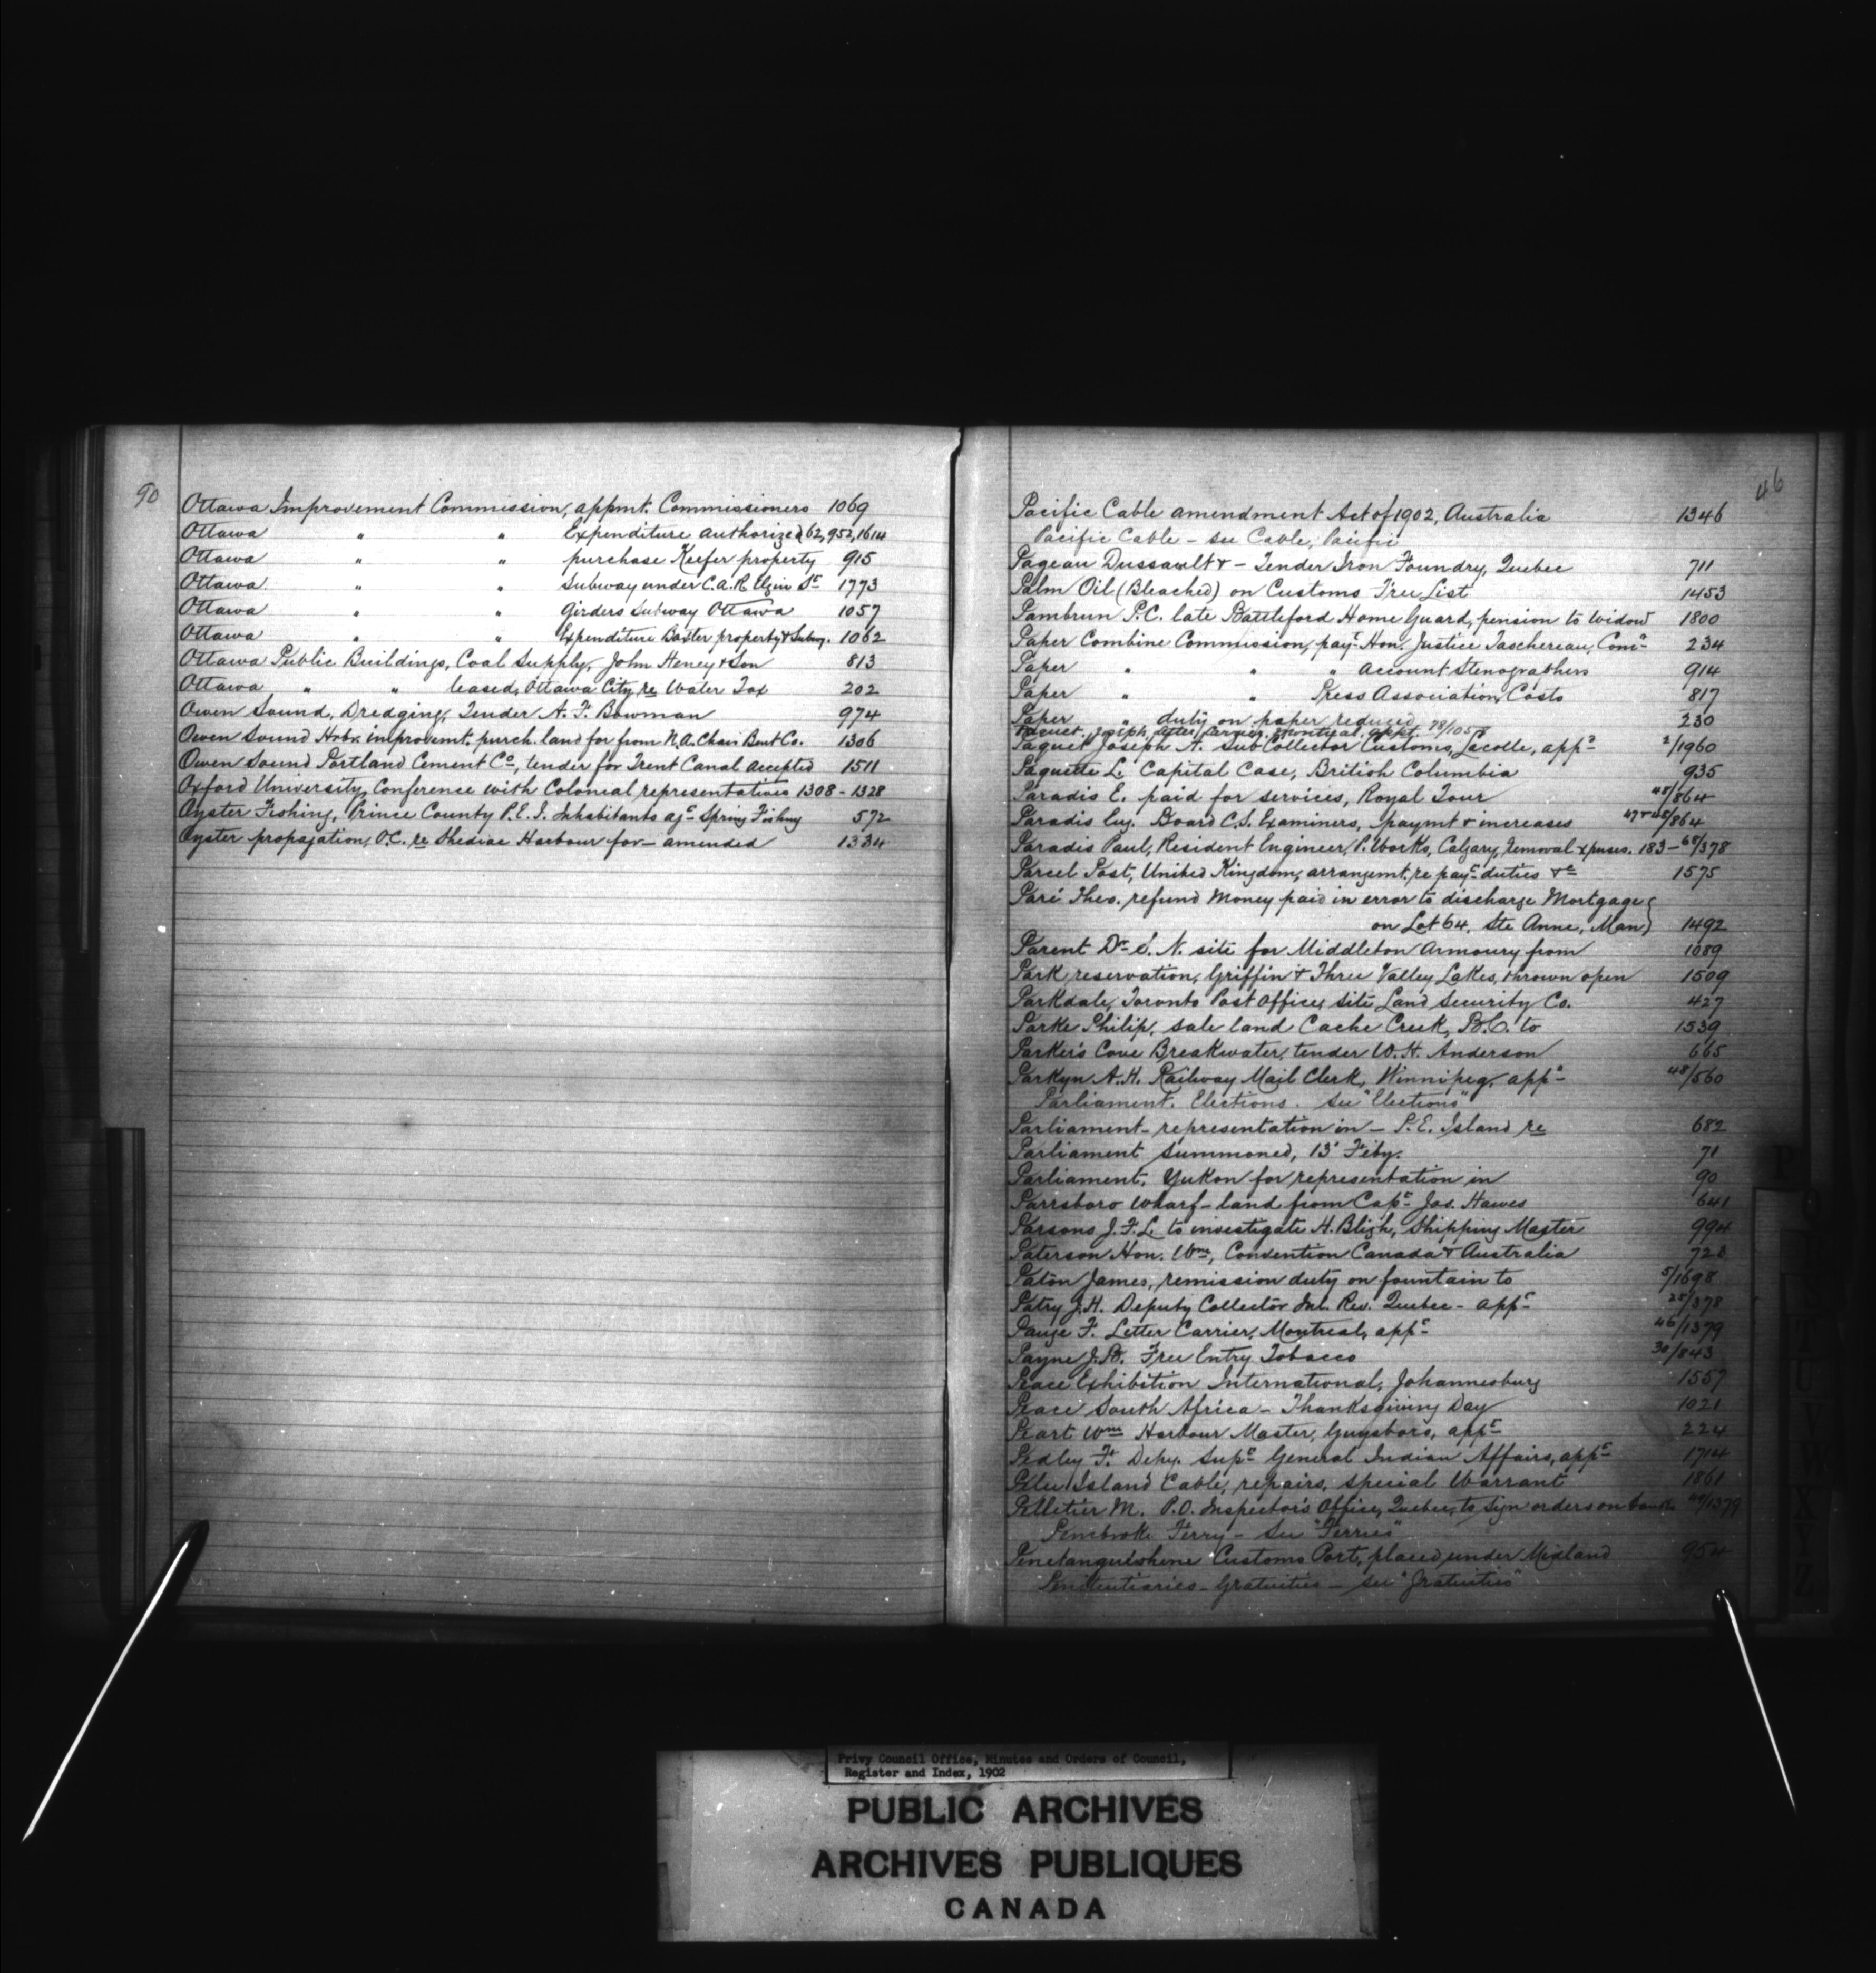 90
Ottawa Improvement Commission, appmt. Commissioners 1069
Ottawa " " Expenditure authorized 62, 952, 1614
Ottawa " " purchase Keefer property 915
Ottawa " " Subway under C.A.R. Elgin St 1773
Ottawa " " Girders Subway Ottawa 1057
Ottawa " " Expenditure Baxter property & Subwy. 1062
Ottawa Public Buildings, Coal Supply, John Heney & Son 813
Ottawa " " leased, Ottawa City re Water Tax 202
Owen Sound, Dredging, Tender A. F. Bowman 974
Owen Sound Hrbr. improvemt. purch. land for from N.A. Chair Bent Co. 1306
Owen Sound Portland Cement Co, tender for Trent Canal accepted 1511
Oxford University, Conference with Colonial representatives 1308 - 1328
Oyster Fishing, Prince County P.E.I. Inhabitants agt Spring Fishing 572
Oyster propagation, O.C. re Shediac Harbour for - amended 1334
46
Pacific Cable amendment Act of 1902, Australia 1346
Pacific Cable - see Cable, Pacific
Pageau Dussault & - Tender Iron Foundry, Quebec 711
Palm Oil (Bleached) on Customs Free List 1453
Pambrun P.C. late Battleford Home Guard, pension to widow 1800
Paper Combine Commission, payt Hon. Justice Taschereau, Comr 234
Paper " " " Account Stenographers 914
Paper " " Press Association Costs 817
Paper " duty on paper reduced 230
Paquet, Joseph, Letter Carrier, Montreal, appt.
Paquet Joseph N. Sub Collector Customs, Lacolle, appt 2/1960
Paquette L. Capital Case, British Columbia 935
Paradis E. paid for services, Royal Tour 48/864
Paradis Eug. Board C.S. Examiners, paymt & increases 47 & 48/864
Paradis Paul, Resident Engineer, P. Works, Calgary, removal expenses. 183 - 60/378
Parcel Post, United Kingdom, arrangemt. re payt duties &c 1575
Paré Theo. refund money paid in error to discharge Mortgage
on Lot 64, Ste Anne, Man 1492
Parent Dr S. N. site for Middleton Armoury from 1089
Park reservation, Griffin & Three Valley Lakes, thrown open 1509
Parkdale, Toronto Post Office, site, Land Security Co. 427
Parke Philip, sale land Cache Creek, B.C. to 1539
Parker's Cove Breakwater, tender W. H. Anderson 665
Parkyn A. H. Railway Mail Clerk, Winnipeg, appt 48/560
Parliament. Elections. See "Elections"
Parliament - representation in - P. E. Island re 682
Parliament Summoned, 13 Feby. 71
Parliament, Yukon for representation in 90
Parrsboro Wharf - land from Capt Jas. Hawes 641
Parsons J. F. L. to investigate H. Bligh, Shipping Master 994
Paterson Hon. Wm, Convention Canada & Australia
Paton James, remission duty on fountain to 5/1698
Patry J. H. Deputy Collector Inl. Rev. Quebec - appt 25/378
Pauze F. Letter Carrier, Montreal, appt 46/1379
Payne J. B. Free Entry Tobacco 30/843
Peace Exhibition International, Johannesburg 1557
Peace South Africa - Thanksgiving Day 1021
Peart Wm Harbour Master, Guysboro, appt 224
Pedley F. Depy. Supt General Indian Affairs, appt 1714
Pelee Island Cable, repairs, special Warrant 1861
Pelletier M. P.O. Inspector's Office, Quebec, to sign orders on bank
Pembroke Ferry - See "Ferries"
Penetanguishene Customs Port, placed under Midland 954
Penitentiaries - Gratuities - see "Gratuities"
Privy Council Office, Minutes and Orders of Council,
Register and Index, 1902
PUBLIC ARCHIVES
ARCHIVES PUBLIQUES
CANADA